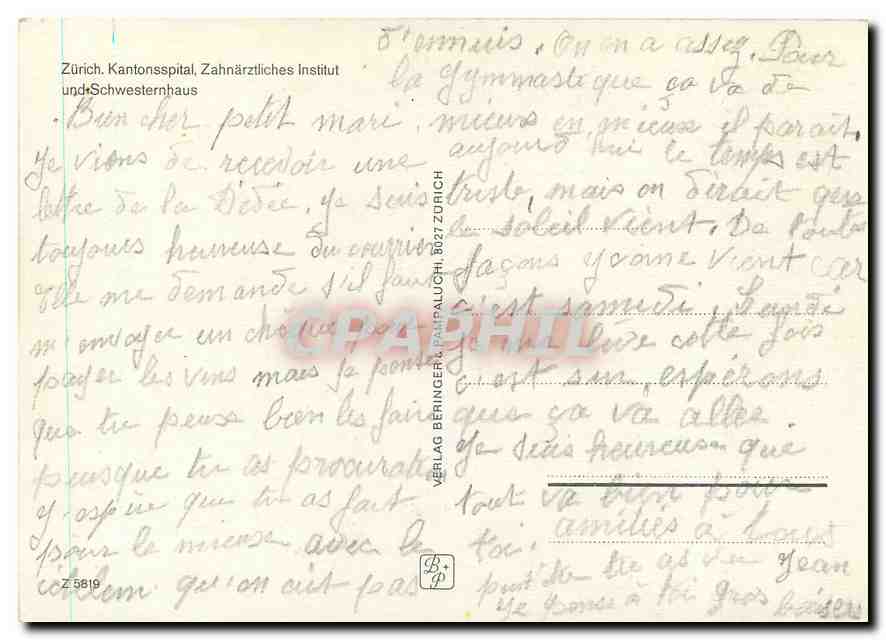 Zürich. Kantonsspital, Zahnärztliches Institut
und Schwesternhaus
Bien cher petit mari,
je viens de recevoir une
lettre de la Dédée, je suis
toujours heureuse du courrier
elle me demande s'il faut
m'envoyer un chèque pour
payer les vins mais je pense
que tu peux bien les faire
puisque tu as procuration
j'espère que tu as fait
pour le mieux avec le
qu'on ait pas
Z 5819
VERLAG BERINGER & PAMPALUCHI, 8027 ZÜRICH
B+P
d'ennuis. On en a assez. Pour
la gymnastique ça va de
mieux en mieux il parait,
aujourd'hui le temps est
triste, mais on dirait que
le soleil vient. De toutes
façons yvonne vient car
c'est samedi. Lundi
je me lève cette fois
c'est sur, espérons
que ça va aller
Je suis heureuse que
tout va bien pour
toi. amitiés à tous
tu as vu Jean
je pense à toi gros baisers
CPAPHIL